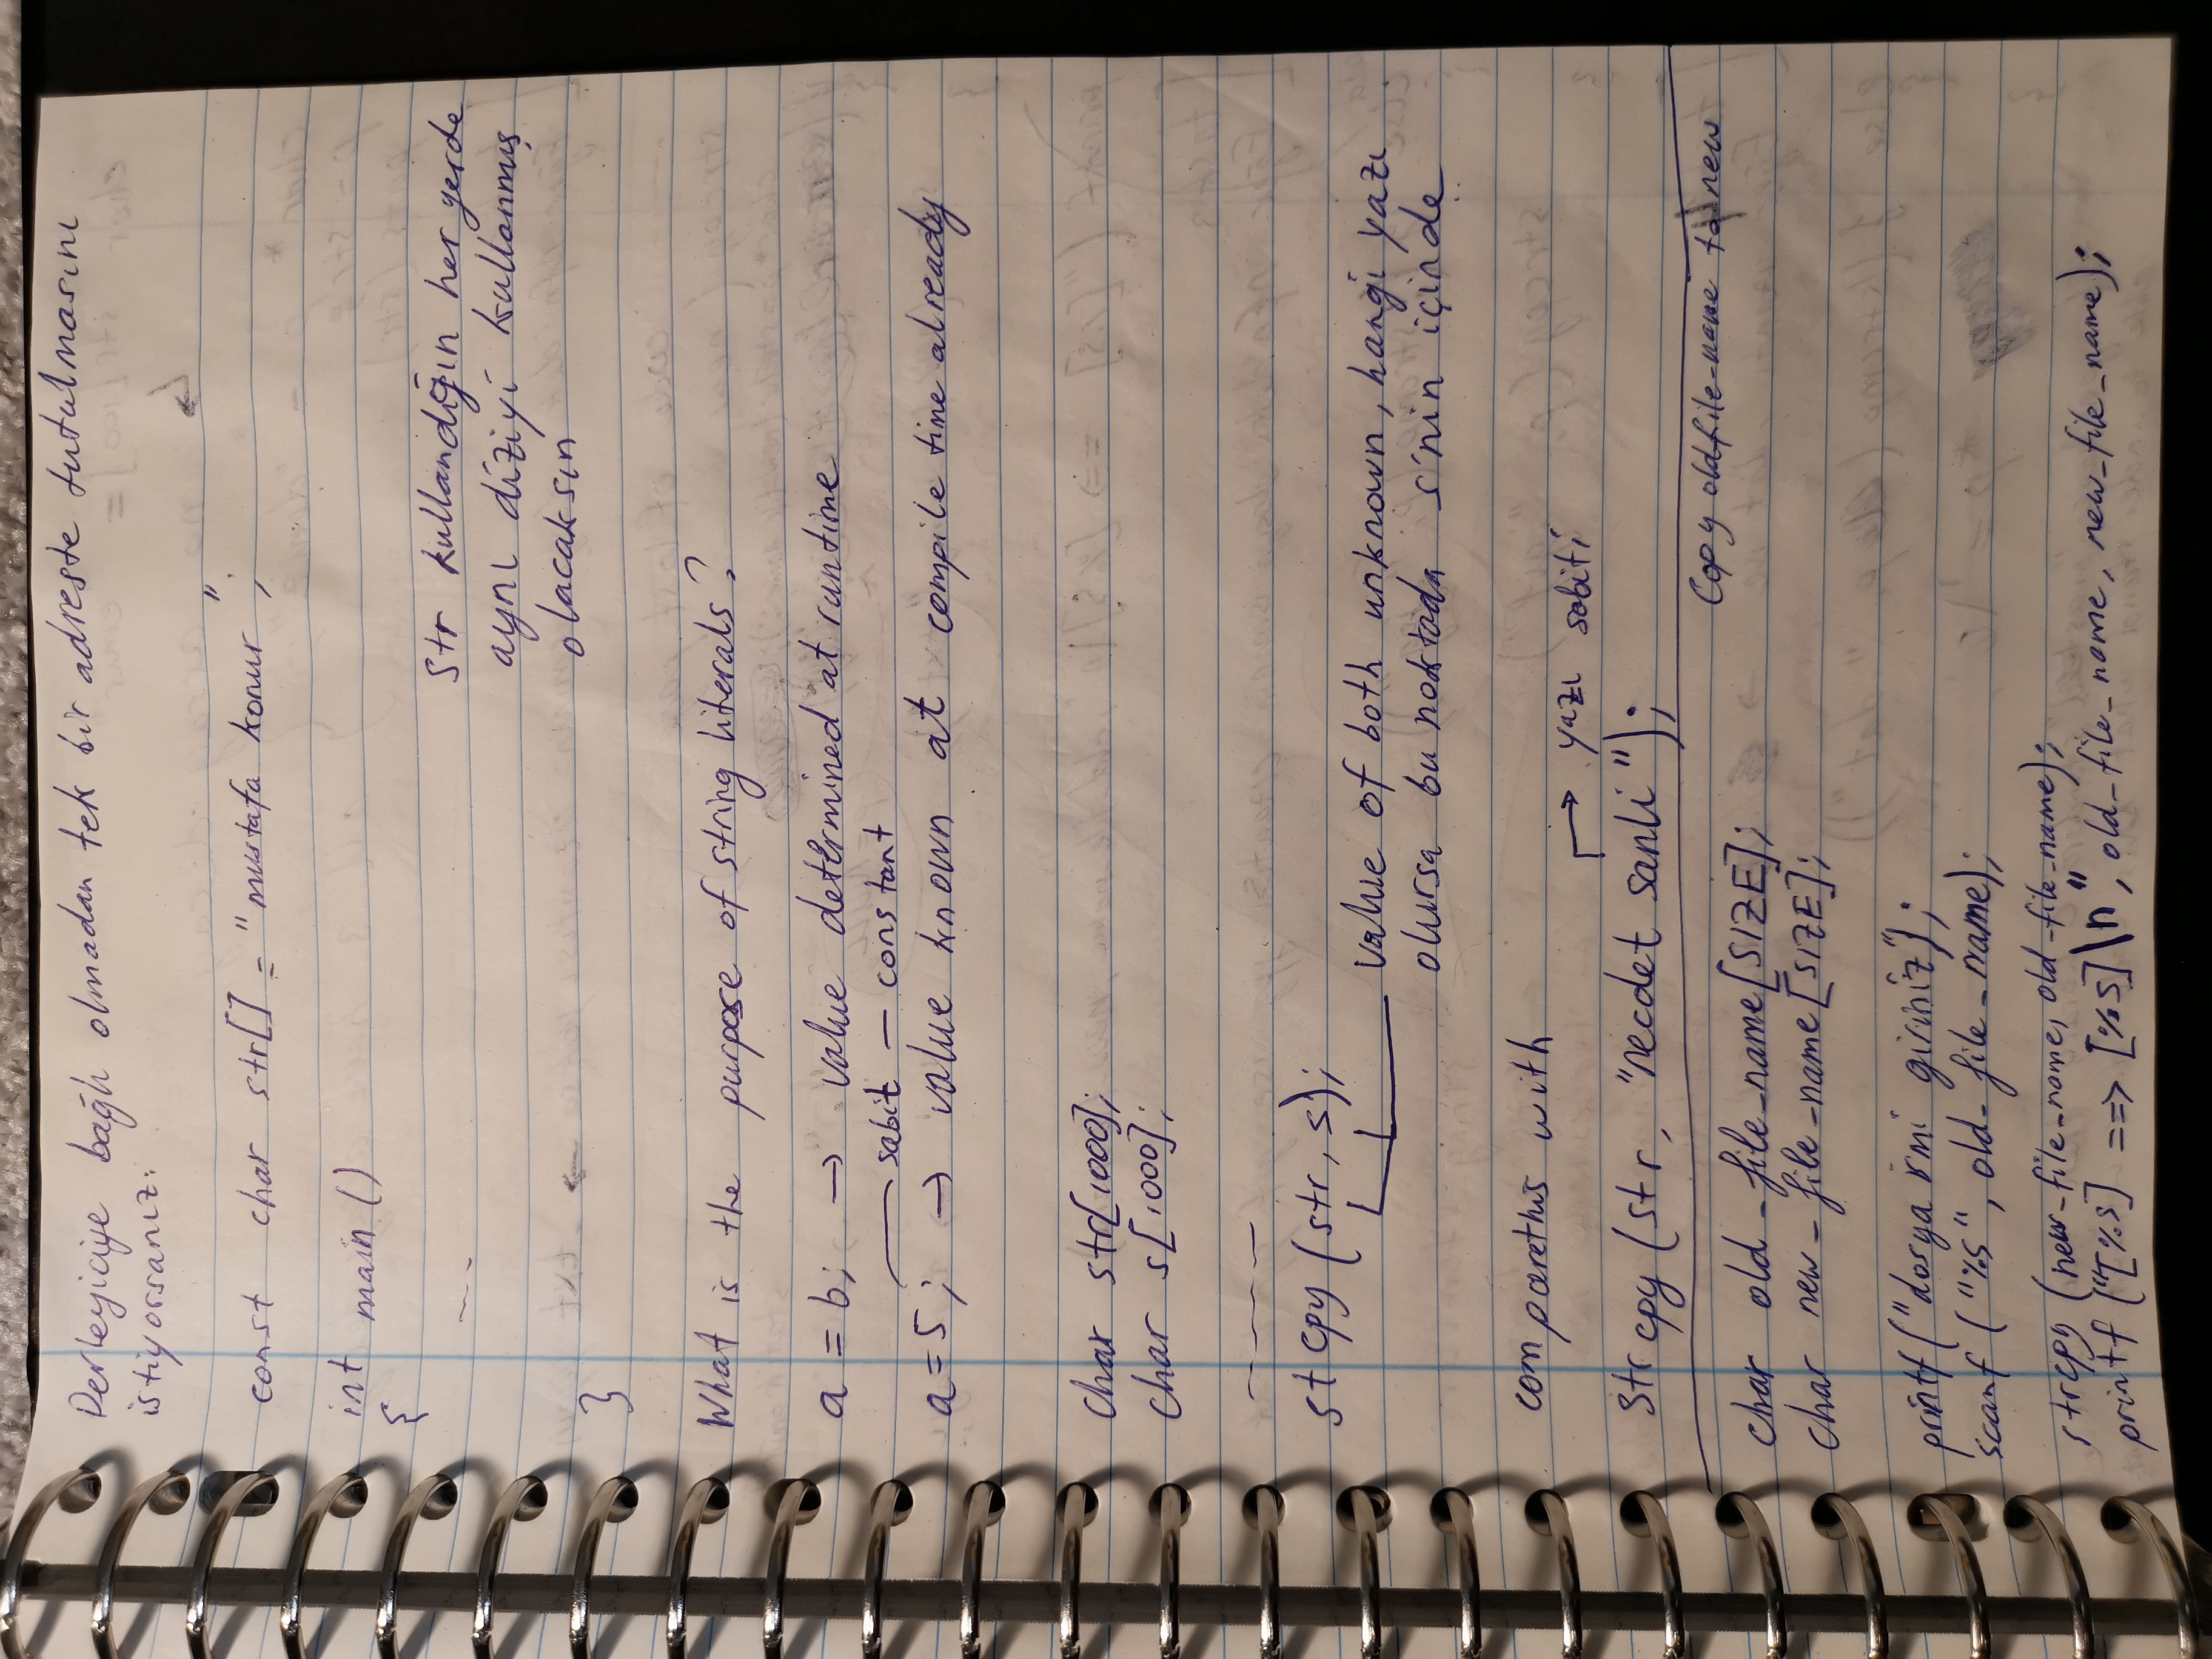 Derleyiciye bağlı olmadan tek bir adreste tutulmasını
istiyorsanız:
const char str[] = "mustafa konur";
int main ()
{
---
str kullandığın her yerde
aynı diziyi kullanmış
olacaksın
}
What is the purpose of string literals?
a = b; → value determined at runtime
sabit — constant
a = 5; → value known at compile time already
char str[1000];
char s[1000];
----
st cpy (str, s);
value of both unknown, hangi yazı
olursa bu noktada s'nin içinde
compare this with
→ yazı sabiti
strcpy (str, "necdet sanli");
Copy oldfile-name to new
char old_file_name[SIZE];
char new_file_name[SIZE];
printf ("dosya ismi giriniz");
scanf ("%s", old_file_name);
strcpy (new_file_name, old_file_name);
printf ("[%s] ==> [%s]\n", old_file_name, new_file_name);